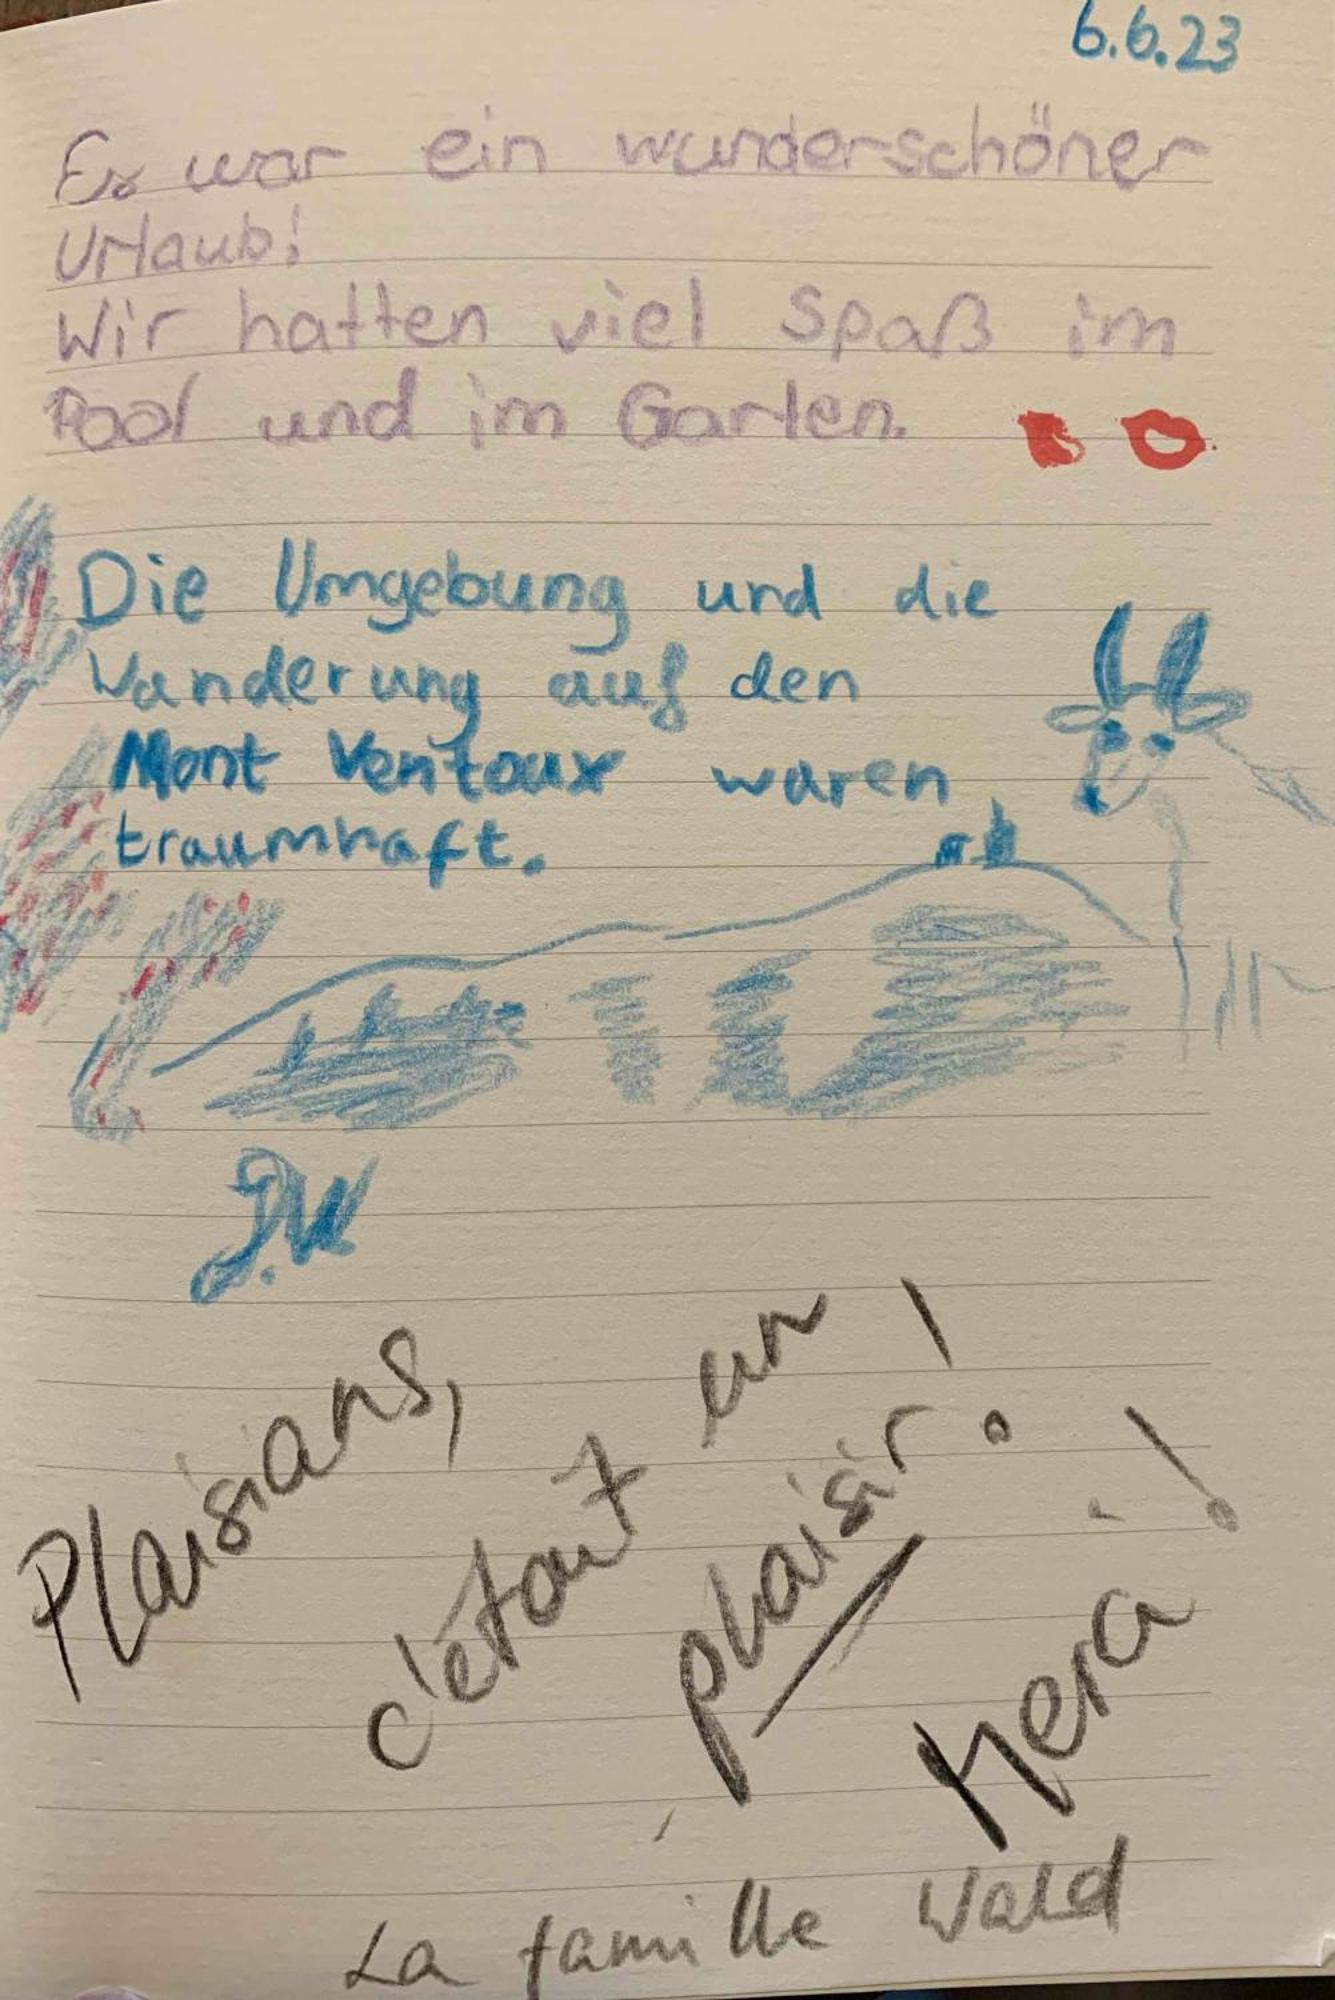 6.6.23
Es war ein wunderschöner
Urlaub!
Wir hatten viel Spaß im
Pool und im Garten.
Die Umgebung und die
Wanderung auf den
Mont Ventoux waren
traumhaft.
Plaisians,
c'était un
plaisir!
Merci!
La famille Wald